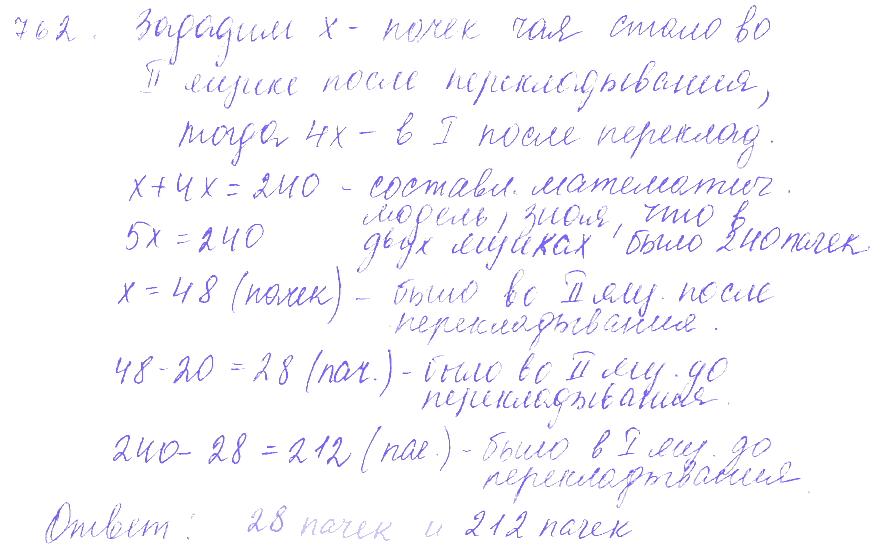 762. Зададим x - пачек чая стало во
II ящике после перекладывания,
тогда 4x - в I после переклад.
x + 4x = 240 - составл. математич.
модель, зная, что в
5x = 240 двух ящиках было 240 пачек.
x = 48 (пачек) - было во II ящ. после
перекладывания.
48 - 20 = 28 (пач.) - было во II ящ. до
перекладывания.
240 - 28 = 212 (пач.) - было в I ящ. до
перекладывания
Ответ: 28 пачек и 212 пачек